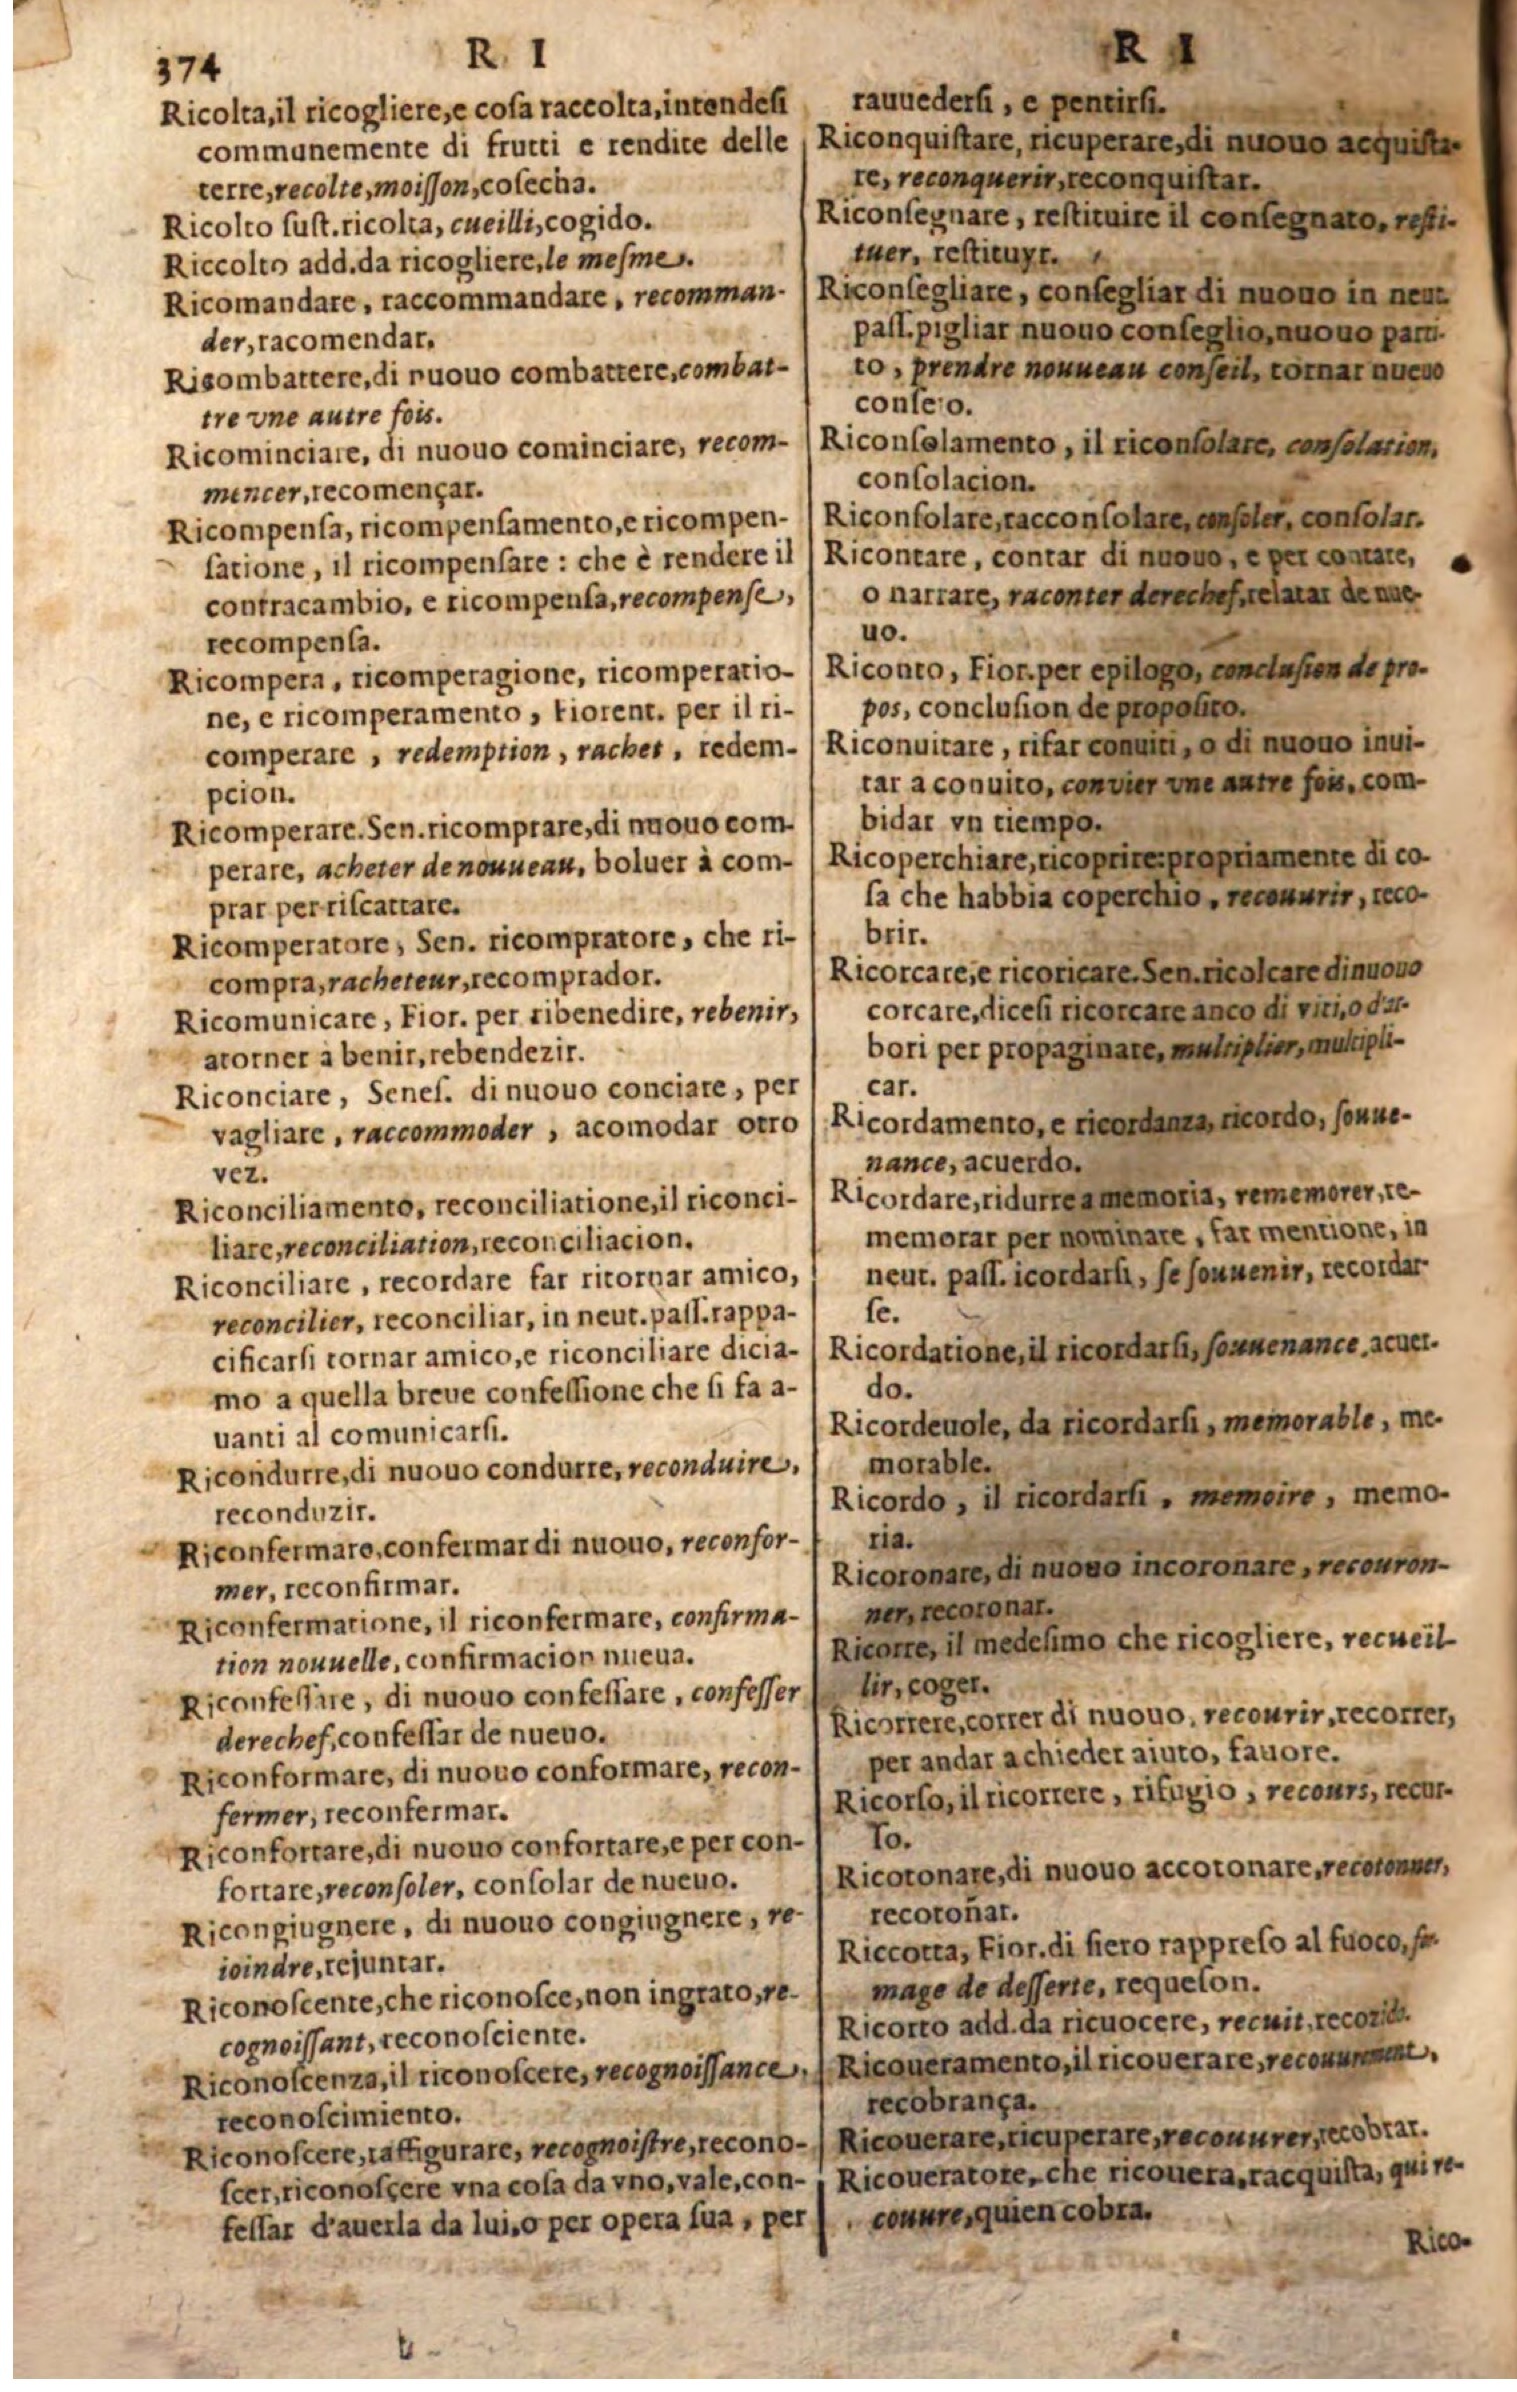 374
R I
Ricolta,il ricogliere,e coſa raccolta,intendeſi
communemente di frutti e rendite delle
terre,recolte,moiſſon,coſecha.
Ricolto ſuſt.ricolta, cueilli,cogido.
Riccolto add.da ricogliere,le meſme.
Ricomandare, raccommandare, recomman-
der,racomendar.
Ricombattere,di nuouo combattere,combat-
tre vne autre fois.
Ricominciare, di nuouo cominciare, recom-
mencer,recomençar.
Ricompenſa, ricompenſamento,e ricompen-
ſatione, il ricompenſare : che è rendere il
contracambio, e ricompenſa,recompenſe,
recompenſa.
Ricompera, ricomperagione, ricomperatio-
ne, e ricomperamento, Fiorent. per il ri-
comperare, redemption, rachet, redem-
pcion.
Ricomperare.Sen.ricomprare,di nuouo com-
perare, acheter de nouueau, boluer à com-
prar per riſcattare.
Ricomperatore, Sen. ricompratore, che ri-
compra,racheteur,recomprador.
Ricomunicare, Fior. per ribenedire, rebenir,
atorner a benir,rebendezir.
Riconciare, Seneſ. di nuouo conciare, per
vagliare, raccommoder, acomodar otro
vez.
Riconciliamento, reconciliatione,il riconci-
liare,reconciliation,reconciliacion.
Riconciliare, recordare far ritornar amico,
reconcilier, reconciliar, in neut.paſſ.rappa-
cificarſi tornar amico,e riconciliare dicia-
mo a quella breue confeſſione che ſi fa a-
uanti al comunicarſi.
Ricondurre,di nuouo condurre, reconduire,
reconduzir.
Riconfermare,confermar di nuouo, reconfor-
mer, reconfirmar.
Riconfermatione, il riconfermare, confirma-
tion nouuelle, confirmacion nueua.
Riconfeſſare, di nuouo confeſſare, confeſſer
derechef,confeſſar de nueuo.
Riconformare, di nuouo conformare, recon-
fermer, reconfermar.
Riconfortare,di nuouo confortare,e per con-
fortare,reconſoler, conſolar de nueuo.
Ricongiugnere, di nuouo congiugnere, re-
ioindre,rejuntar.
Riconoſcente,che riconoſce,non ingrato,re-
cognoiſſant, reconoſciente.
Riconoſcenza,il riconoſcere, recognoiſſance,
reconoſcimiento.
Riconoſcere,raffigurare, recognoiſtre,recono-
ſcer,riconoſçere vna coſa da vno,vale,con-
feſſar d'auerla da lui,o per opera ſua, per
R I
rauuederſi, e pentirſi.
Riconquiſtare, ricuperare,di nuouo acquiſta-
re, reconquerir,reconquiſtar.
Riconſegnare, reſtituire il conſegnato, reſti-
tuer, reſtituyr.
Riconſegliare, conſegliar di nuouo in neut.
paſſ.pigliar nuouo conſeglio,nuouo parti-
to, prendre nouueau conſeil, tornar nueuo
conſe o.
Riconſolamento, il riconſolare, conſolation,
conſolacion.
Riconſolare,racconſolare, conſoler, conſolar.
Ricontare, contar di nuouo, e per contare,
o narrare, raconter derechef,relatar de nue-
uo.
Riconto, Fior.per epilogo, concluſion de pro-
pos, concluſion de propoſito.
Riconuitare, rifar conuiti, o di nuouo inui-
tar a conuito, convier vne autre fois, com-
bidar vn tiempo.
Ricoperchiare,ricoprire:propriamente di co-
ſa che habbia coperchio, recouurir, reco-
brir.
Ricorcare,e ricoricare.Sen.ricolcare di nuouo
corcare,diceſi ricorcare anco di viti,o d'ar-
bori per propaginare, multiplier, multipli-
car.
Ricordamento, e ricordanza, ricordo, ſouue-
nance, acuerdo.
Ricordare,ridurre a memoria, rememorer,re-
memorar per nominare, far mentione, in
neut. paſſ. icordarſi, ſe ſouuenir, recordar-
ſe.
Ricordatione,il ricordarſi, ſouuenance,acuer-
do.
Ricordeuole, da ricordarſi, memorable, me-
morable.
Ricordo, il ricordarſi, memoire, memo-
ria.
Ricoronare, di nuouo incoronare, recouron-
ner, recoronar.
Ricorre, il medeſimo che ricogliere, recueil-
lir, coger.
Ricorrere,correr di nuouo, recourir,recorrer,
per andar a chieder aiuto, fauore.
Ricorſo, il ricorrere, rifugio, recours, recur-
ſo.
Ricotonare,di nuouo accotonare,recotonner,
recotoñar.
Riccotta, Fior.di ſiero rappreſo al fuoco, fro-
mage de deſſerte, requeſon.
Ricotto add.da ricuocere, recuit,recozido.
Ricoueramento,il ricouerare,recouurement,
recobrança.
Ricouerare,ricuperare,recouurer,recobrar.
Ricoueratore, che ricouera,racquiſta, qui re-
couure,quien cobra.
Rico-